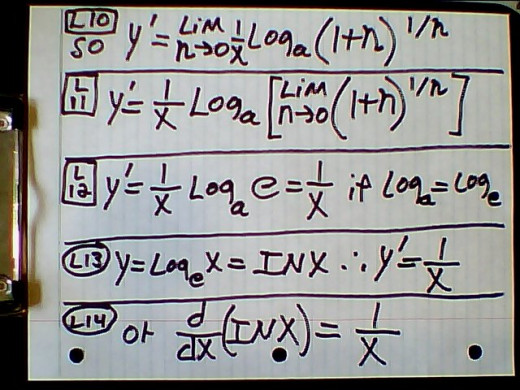 L10 SO y' = Lim n→0 1/x Log_a (1+n)^1/n
L11 y' = 1/x Log_a [Lim n→0 (1+n)^1/n]
L12 y' = 1/x Log_a e = 1/x if Log_a = Log_e
L13 y = Log_e x = INX ∴ y' = 1/x
L14 or d/dx (INX) = 1/x